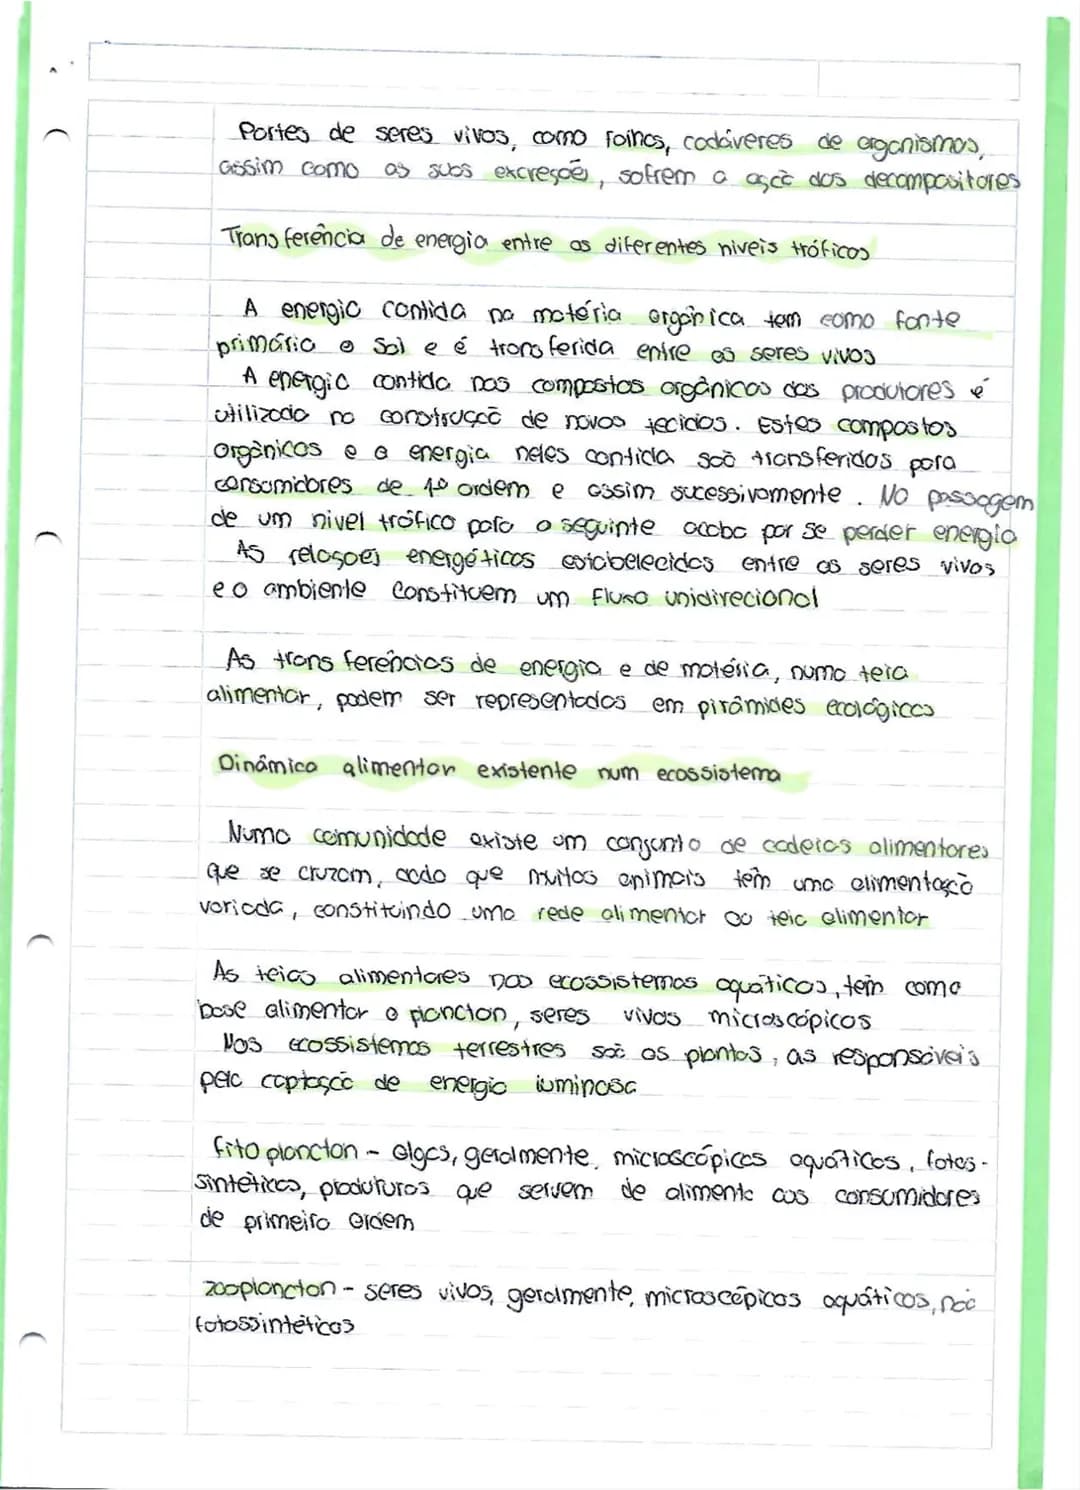 Partes de seres vivos, como folhas, cadáveres de organismos,
assim como as suas excreções, sofrem a ação dos decompositores
Transferência de energia entre os diferentes niveis tróficos
A energia contida na matéria orgânica tem como fonte
primária o Sol e é transferida entre os seres vivos
A energia contida nos compostos orgânicos dos produtores é
utilizada na construção de novos tecidos. Estes compostos
orgânicos e a energia neles contida são transferidos para
consumidores de 1º ordem e assim sucessivamente. Na passagem
de um nivel trófico para o seguinte acaba por se perder energia
As relações energéticas estabelecidas entre os seres vivos
e o ambiente constituem um fluxo unidirecional
As transferências de energia e de matéria, numa teia
alimentar, podem ser representadas em pirâmides ecológicas
Dinâmica alimentar existente num ecossistema
Numa comunidade existe um conjunto de cadeias alimentares
que se cruzam, dado que muitos animais têm uma alimentação
variada, constituindo uma rede alimentar ou teia alimentar
As teias alimentares nos ecossistemas aquáticos, têm como
base alimentar o plancton, seres vivos microscópicos
Nos ecossistemas terrestres são as plantas, as responsáveis
pela captação de energia luminosa
fitoplancton - algas, geralmente, microscópicas aquáticas, fotos-
sintéticas, produturos que servem de alimento aos consumidores
de primeiro ordem
zooplancton - seres vivos, geralmente, microscópicos aquáticos, não
fotossintéticos